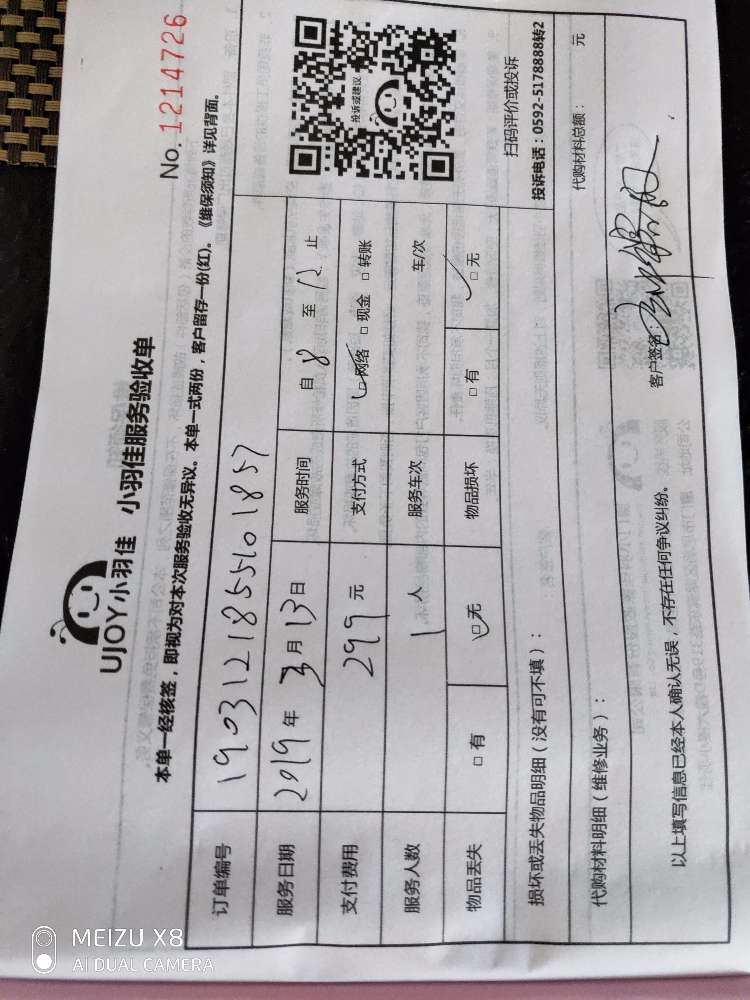 UJOY小羽佳 小羽佳服务验收单
No. 1214726
本单一经核签，即视为对本次服务验收无异议。本单一式两份，客户留存一份(红)。《维保须知》详见背面。
订单编号
服务日期 2019 年 3 月 13 日 服务时间 自 8 至 12 止
支付费用 299 元 支付方式 □网络 □现金 □转账
服务人数 1 人 服务车次 车/次
物品丢失 □有 □无 物品损坏 □有 □无
投诉或建议
扫码评价或投诉
投诉电话：0592-5178888转2
损坏或丢失物品明细（没有可不填）：
代购材料明细（维修业务）： 代购材料总额： 元
以上填写信息已经本人确认无误，不存在任何争议纠纷。 客户签名：
MEIZU X8
AI DUAL CAMERA